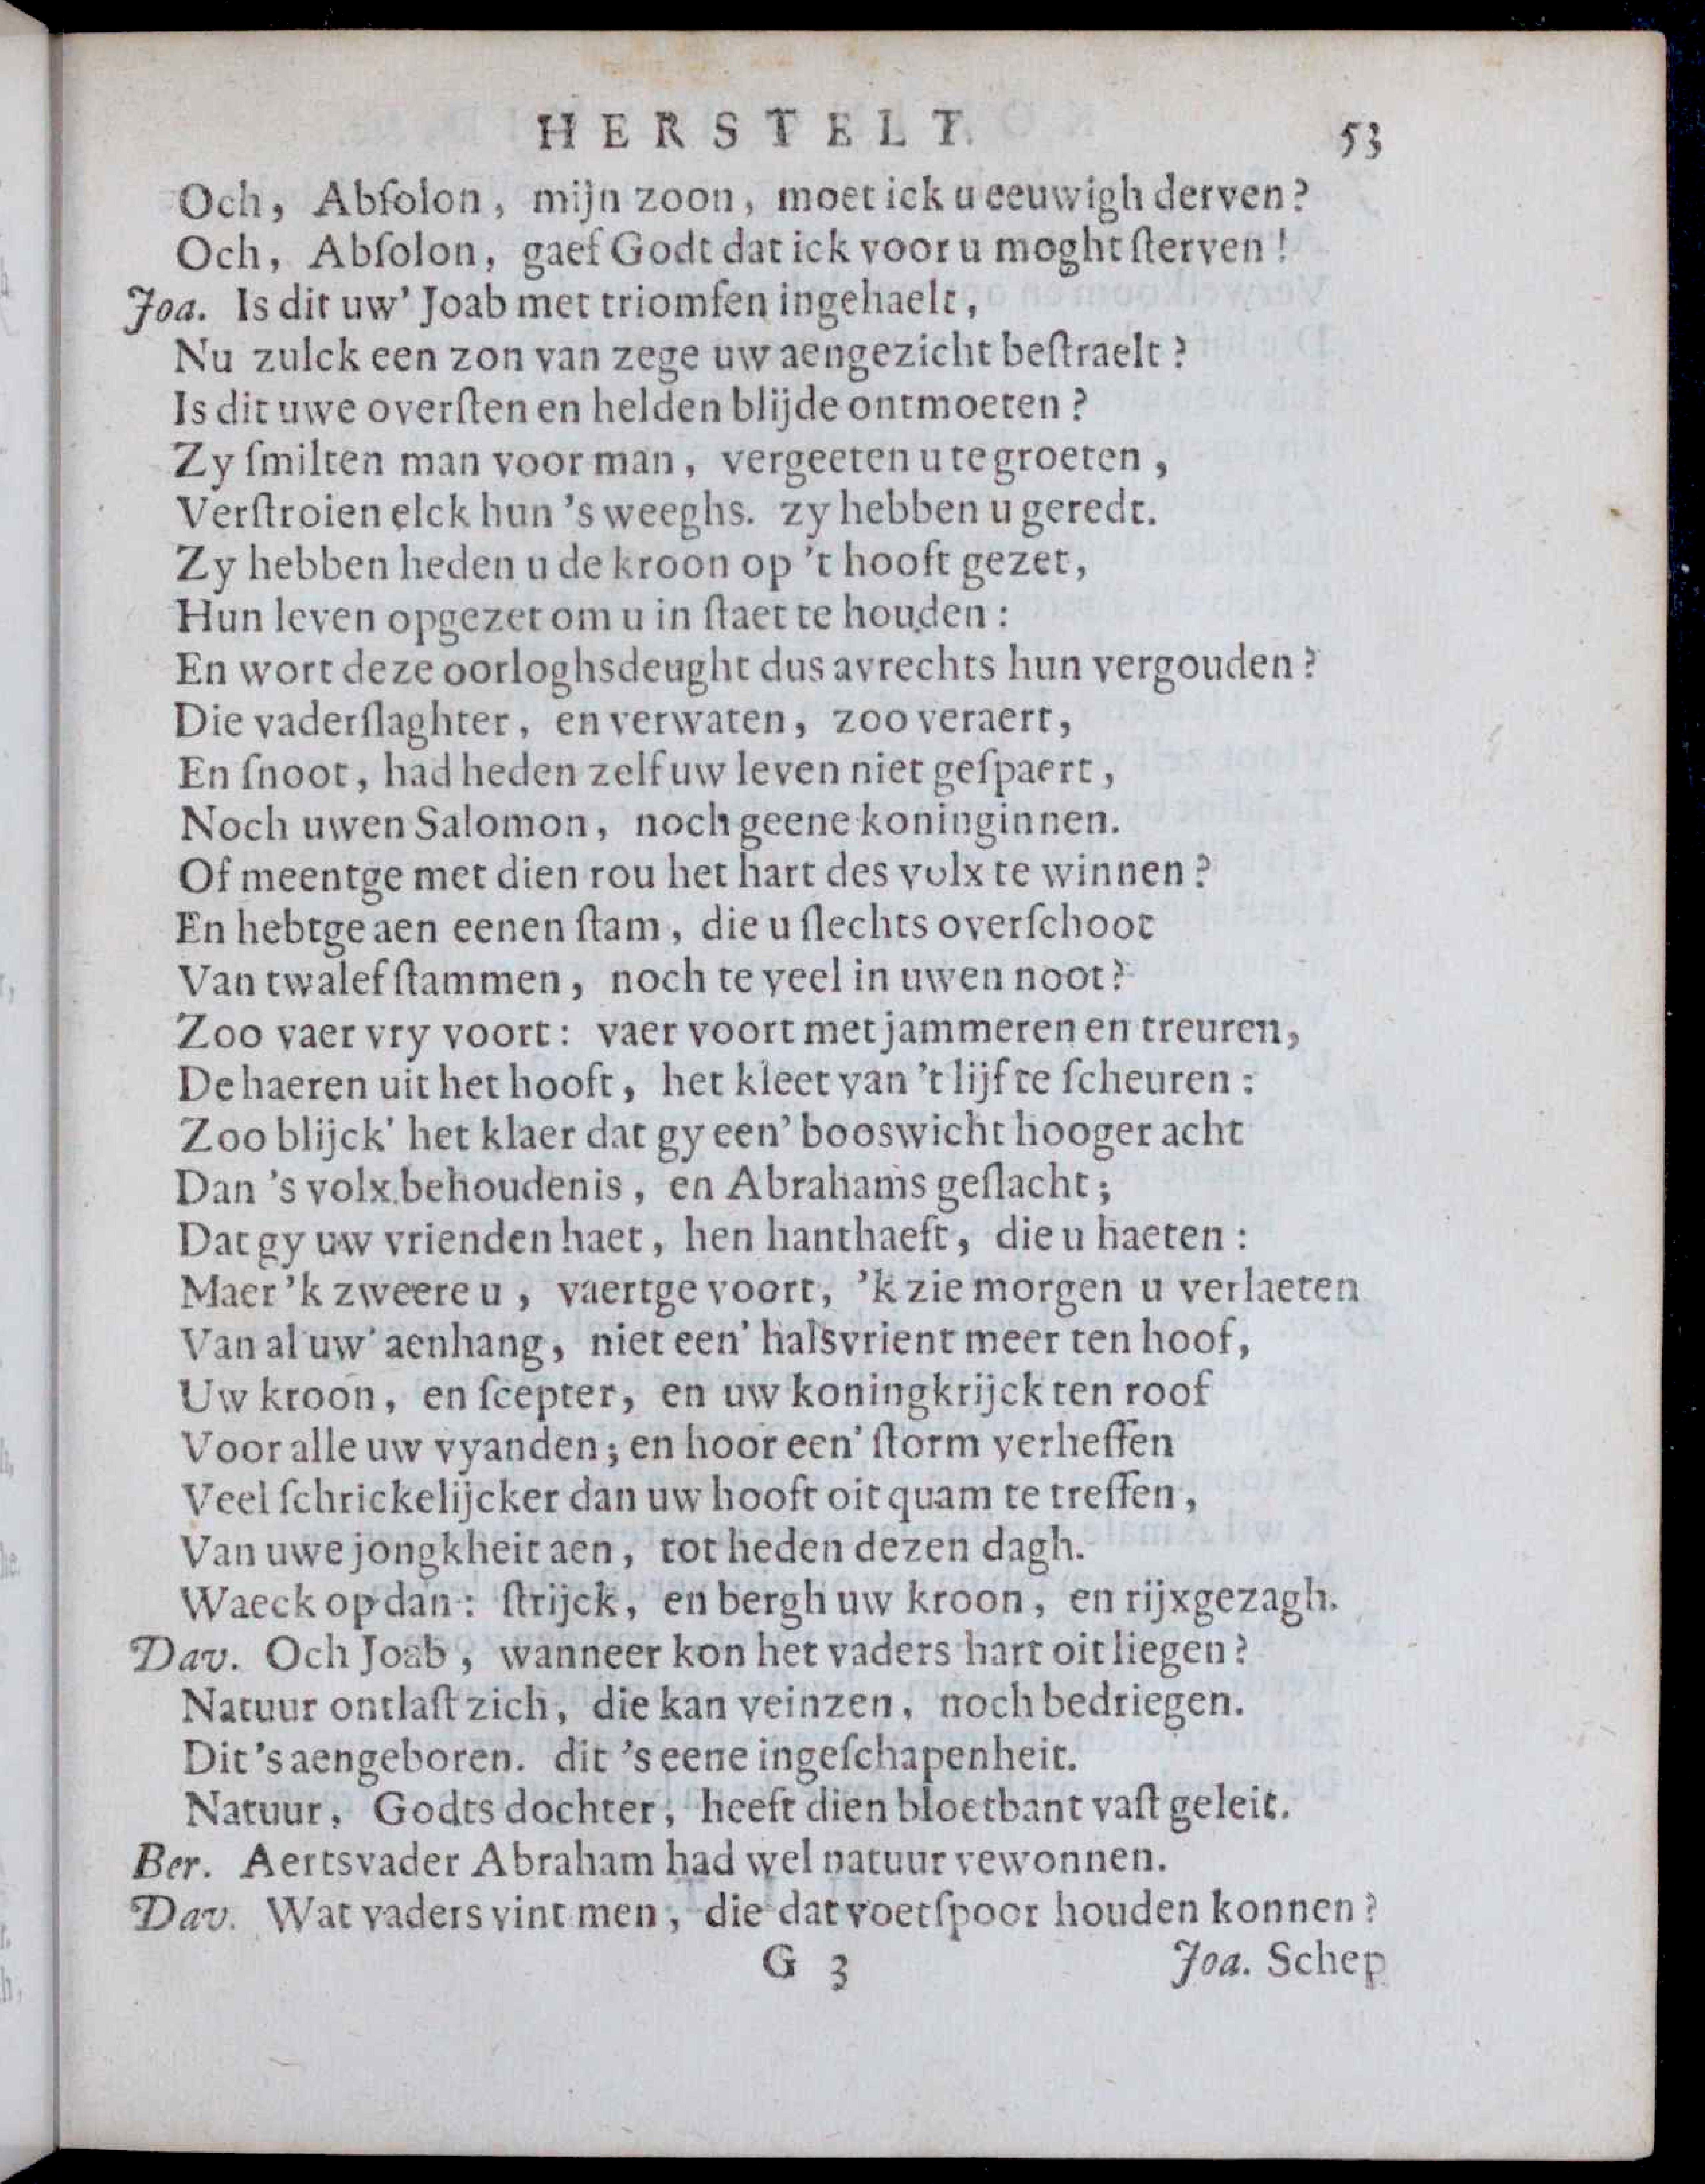 HERSTELT. 53
Och, Abſolon, mijn zoon, moet ick u eeuwigh derven?
Och, Abſolon, gaef Godt dat ick voor u moght ſterven!
Joa. Is dit uw' Joab met triomfen ingehaelt,
Nu zulck een zon van zege uw aengezicht beſtraelt?
Is dit uwe overſten en helden blijde ontmoeten?
Zy ſmilten man voor man, vergeeten u te groeten,
Verſtroien elck hun 's weeghs. zy hebben u geredt.
Zy hebben heden u de kroon op 't hooft gezet,
Hun leven opgezet om u in ſtaet te houden:
En wort deze oorloghsdeught dus avrechts hun vergouden?
Die vaderſlaghter, en verwaten, zoo veraert,
En ſnoot, had heden zelf uw leven niet geſpaert,
Noch uwen Salomon, noch geene koninginnen.
Of meentge met dien rou het hart des volx te winnen?
En hebtge aen eenen ſtam, die u ſlechts overſchoot
Van twalef ſtammen, noch te veel in uwen noot?
Zoo vaer vry voort: vaer voort met jammeren en treuren,
De haeren uit het hooft, het kleet van 't lijf te ſcheuren:
Zoo blijck' het klaer dat gy een' booswicht hooger acht
Dan 's volx behoudenis, en Abrahams geſlacht;
Dat gy uw vrienden haet, hen hanthaeft, die u haeten:
Maer 'k zweere u, vaertge voort, 'k zie morgen u verlaeten
Van al uw' aenhang, niet een' halsvrient meer ten hoof,
Uw kroon, en ſcepter, en uw koningkrijck ten roof
Voor alle uw vyanden; en hoor een' ſtorm verheffen
Veel ſchrickelijcker dan uw hooft oit quam te treffen,
Van uwe jongkheit aen, tot heden dezen dagh.
Waeck op dan: ſtrijck, en bergh uw kroon, en rijxgezagh.
Dav. Och Joab, wanneer kon het vaders hart oit liegen?
Natuur ontlaſt zich, die kan veinzen, noch bedriegen.
Dit 's aengeboren. dit 's eene ingeſchapenheit.
Natuur, Godts dochter, heeft dien bloetbant vaſt geleit.
Ber. Aertsvader Abraham had wel natuur vewonnen.
Dav. Wat vaders vint men, die dat voetſpoor houden konnen?
G 3 Joa. Schep